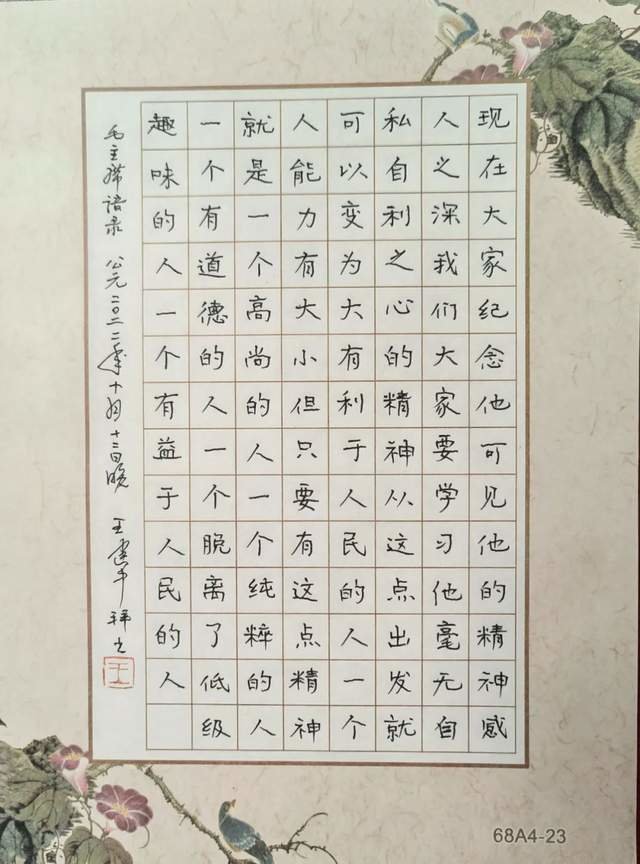 现在大家纪念他可见他的精神感
人之深我们大家要学习他毫无自
私自利之心的精神从这点出发就
可以变为大有利于人民的人一个
人能力有大小但只要有这点精神
就是一个高尚的人一个纯粹的人
一个有道德的人一个脱离了低级
趣味的人一个有益于人民的人
毛主席语录 公元二〇二二年十月十二日晚 王建军拜书
68A4-23